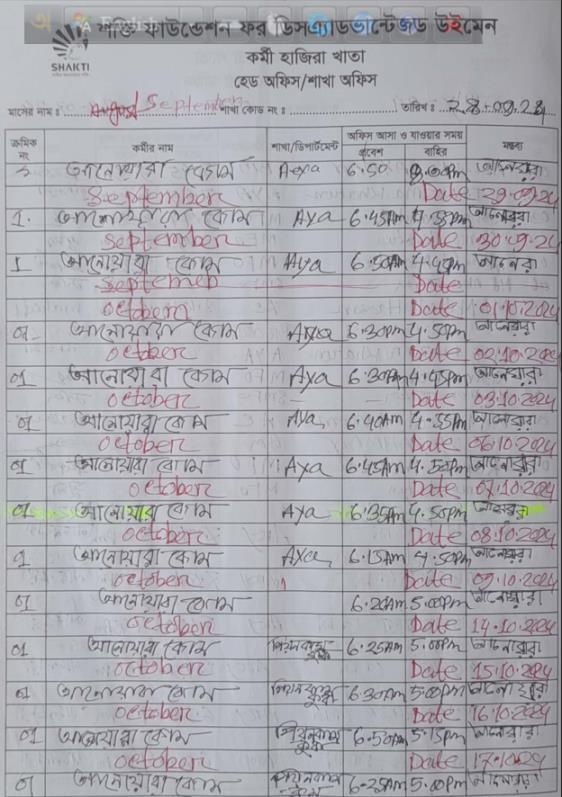 শক্তি ফাউন্ডেশন ফর ডিসএ্যাডভান্টেজড উইমেন
SHAKTI
কর্মী হাজিরা খাতা
হেড অফিস/শাখা অফিস
মাসের নাম : August September শাখা কোড নং : তারিখ : 28.09.24
ক্রমিক নং কর্মীর নাম শাখা/ডিপার্টমেন্ট অফিস আসা ও যাওয়ার সময় মন্তব্য
প্রবেশ বাহির
আনোয়ারা বেগম Aya 6.50 আনোয়ারা
September Date 29.09.24
1. আনোয়ারা বেগম Aya 6.45Am আনোয়ারা
September Date 30.9.24
1 আনোয়ারা বেগম Aya 6.50Am 4.45Pm আনোয়ারা
Septemeb Date
October Date 01.10.2024
আনোয়ারা বেগম Aya 6.30Am 4.50Pm আনোয়ারা
October Date 02.10.2024
01 আনোয়ারা বেগম Aya 6.30Am 4.45Pm আনোয়ারা
October Date 03.10.2024
01 আনোয়ারা বেগম Aya 6.40Am 4.55Pm আনোয়ারা
October Date 06.10.2024
01 আনোয়ারা বেগম Aya 6.45Am 4.50Pm আনোয়ারা
October Date 07.10.2024
01 আনোয়ারা বেগম Aya 6.35Am 4.50Pm আনোয়ারা
October Date 08.10.2024
01 আনোয়ারা বেগম Aya 6.15Am 4.50Pm আনোয়ারা
October Date 09.10.2024
01 আনোয়ারা বেগম 6.20Am 5.00Pm আনোয়ারা
October Date 14.10.2024
01 আনোয়ারা বেগম 6.25Am 5.00Pm আনোয়ারা
October Date 15.10.2024
01 আনোয়ারা বেগম 6.30Am 5.00Pm আনোয়ারা
October Date 16.10.2024
01 আনোয়ারা বেগম 6.50Am 5.15Pm আনোয়ারা
October Date 17.10.24
01 আনোয়ারা বেগম 6.25Am 5.00Pm আনোয়ারা